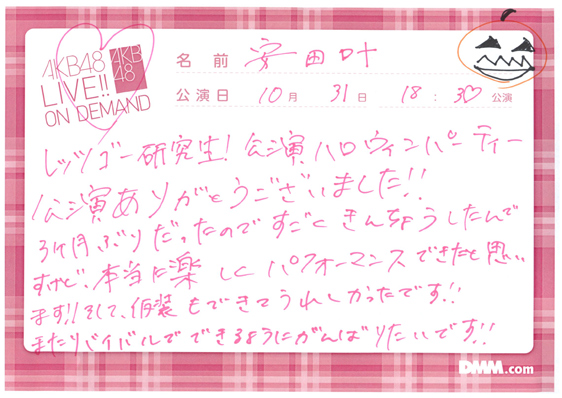 AKB48
LIVE!!
ON DEMAND
AKB
48
名前 安田叶
公演日 10月 31日 18:30公演
レッツゴー研究生!公演ハロウィンパーティー
公演ありがとうございました!!
3ヶ月ぶりだったのですごくきんちょうしたんで
すけど、本当に楽しくパフォーマンスできたと思い
ます!!そして、仮装もできてうれしかったです!!
またリバイバルでできるようにがんばりたいです!!
DMM.com